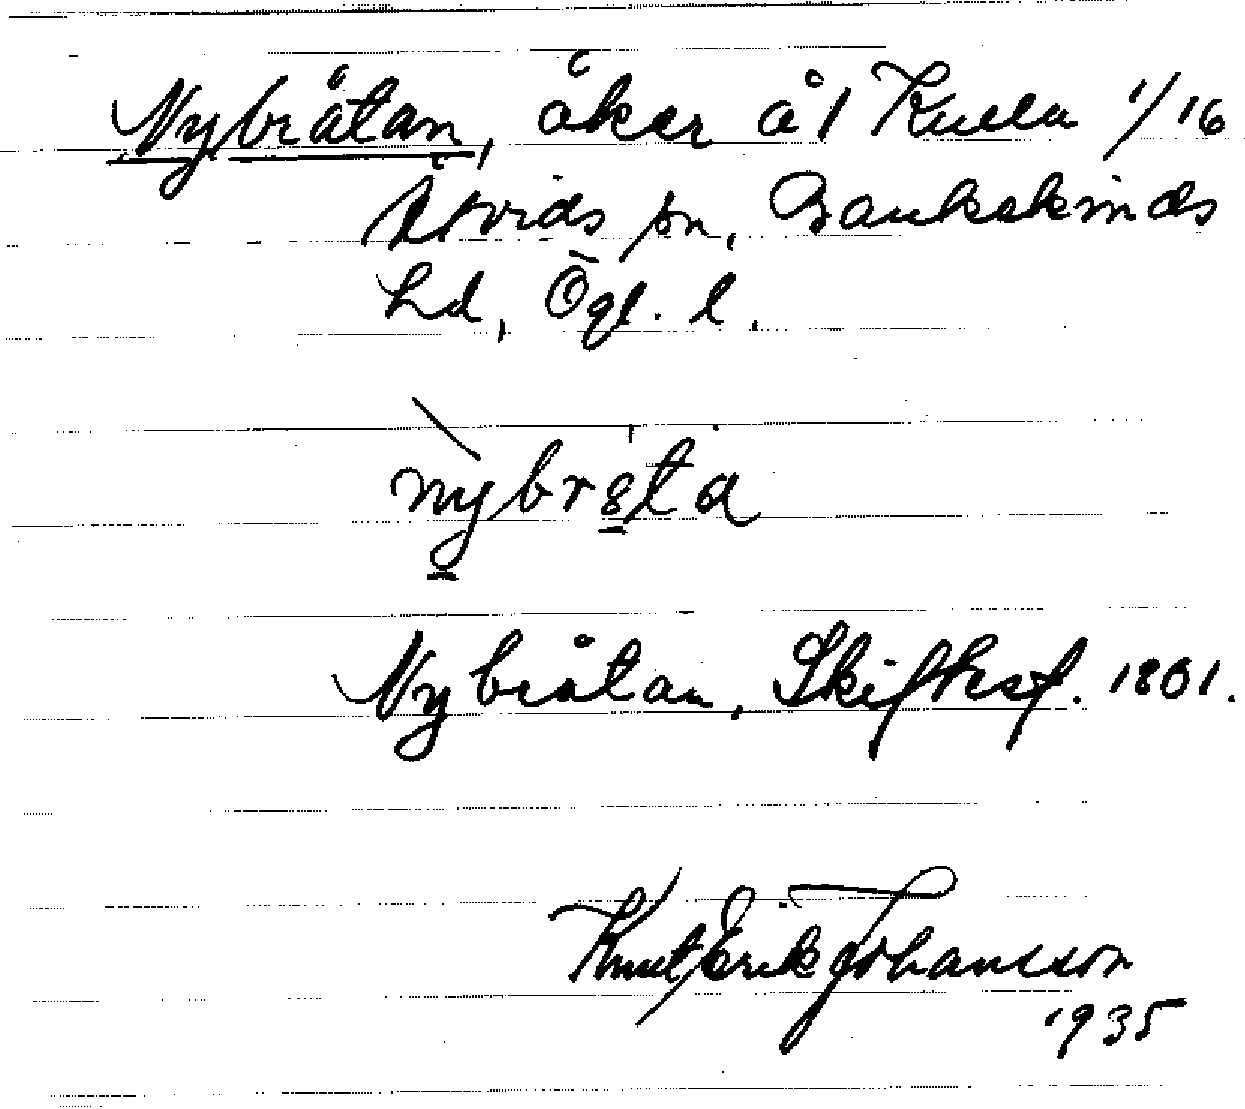 Nybråtan, åker å 1 Kulla 1/16
Åtvids sn, Bankekinds
hd, Ögl. l.
nybråta
Nybråtan, Skifteshf. 1801.
Knut Erik Johansson
1935